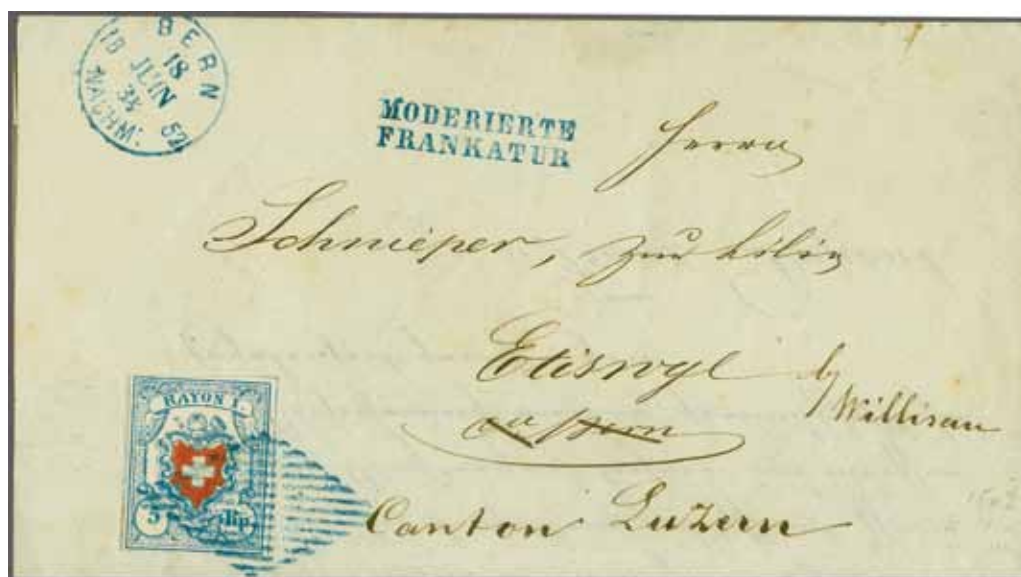 BERN
18
18
JUIN
3½
52
NACHM:
MODERIERTE
FRANKATUR
Herrn
Schnieper, zur Lilie
Etiswyl by
Willisau
Canton Luzern
RAYON I.
5 Rp.